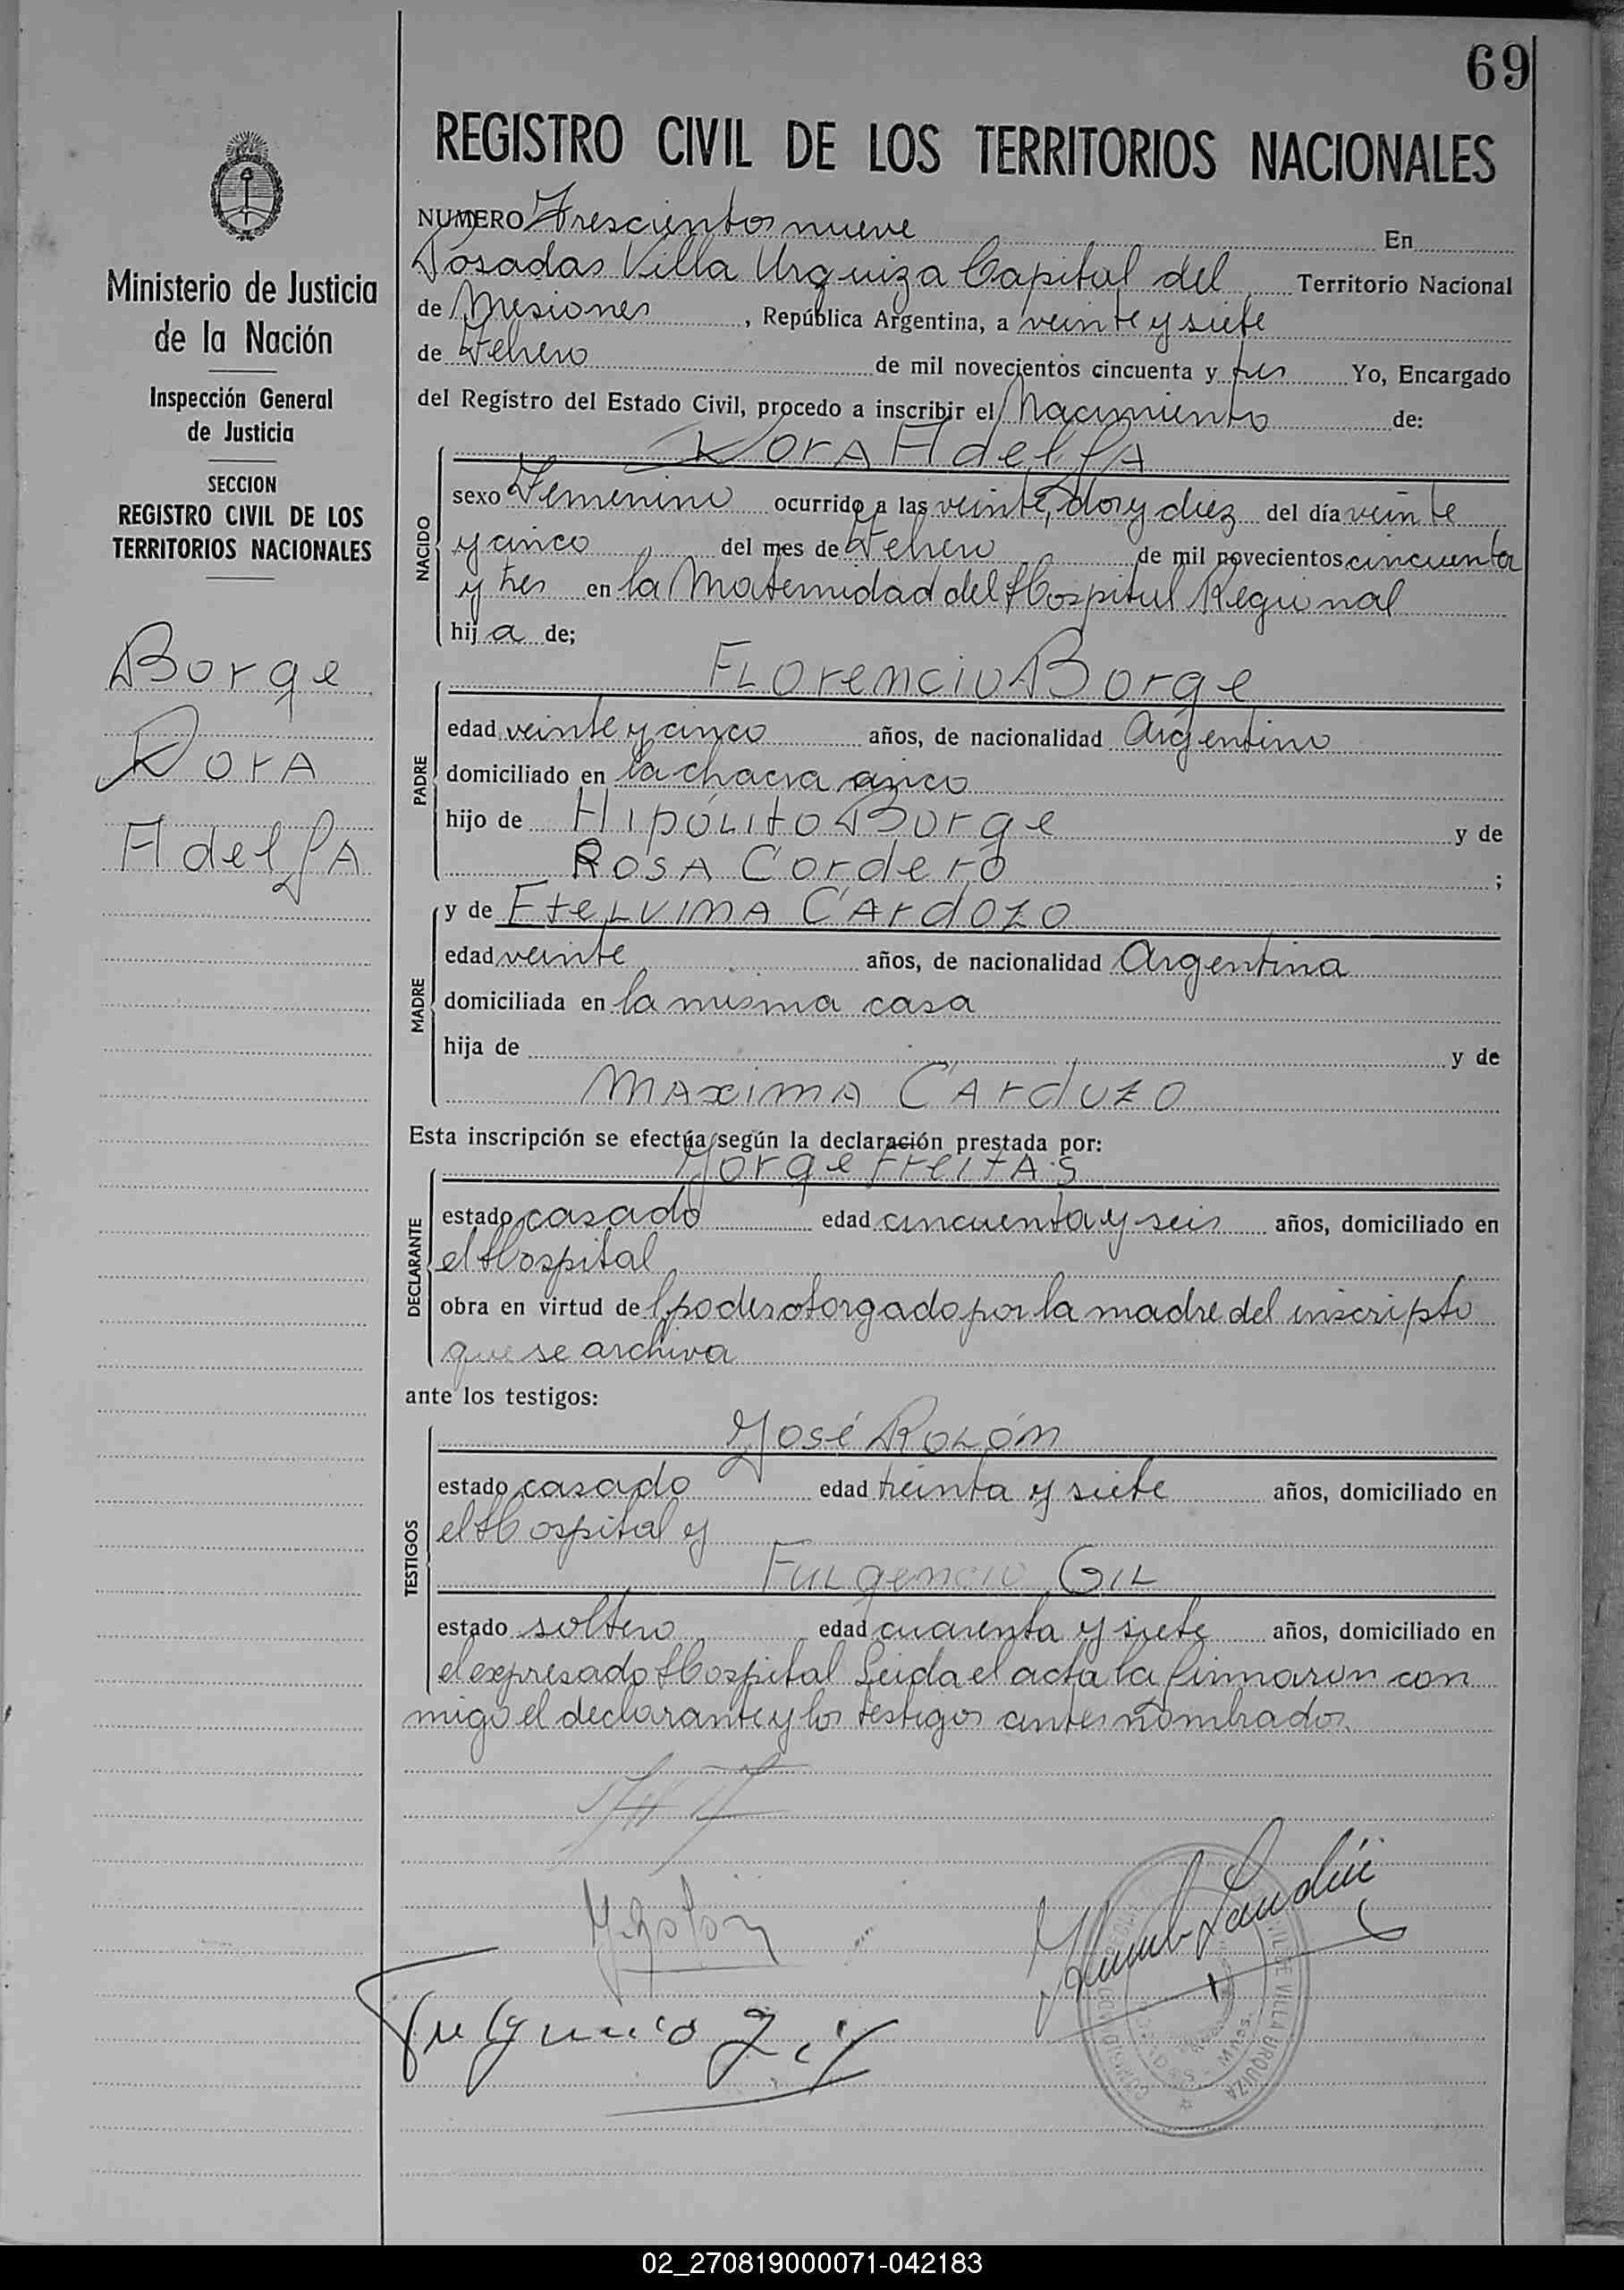 69
REGISTRO CIVIL DE LOS TERRITORIOS NACIONALES
Ministerio de Justicia
de la Nación
Inspección General
de Justicia
SECCION
REGISTRO CIVIL DE LOS
TERRITORIOS NACIONALES
Borge
Dora
Adelfa
NUMERO Trescientos nueve En
Posadas Villa Urquiza Capital del Territorio Nacional
de Misiones, República Argentina, a veinte y siete
de Febrero de mil novecientos cincuenta y tres Yo, Encargado
del Registro del Estado Civil, procedo a inscribir el Nacimiento de:
Dora Adelfa
NACIDO
sexo Femenino ocurrido a las veinte, dos y diez del día veinte
y cinco del mes de Febrero de mil novecientos cincuenta
y tres en la Maternidad del Hospital Regional
hija de;
Florencio Borge
PADRE
edad veinte y cinco años, de nacionalidad Argentino
domiciliado en la chacra cinco
hijo de Hipólito Borge y de
Rosa Cordero ;
MADRE
y de Etelvina Cardozo
edad veinte años, de nacionalidad Argentina
domiciliada en la misma casa
hija de y de
Maxima Cardozo
Esta inscripción se efectúa según la declaración prestada por:
Jorge Freitas
DECLARANTE
estado casado edad cincuenta y seis años, domiciliado en
el Hospital
obra en virtud del poder otorgado por la madre del inscripto
que se archiva
ante los testigos:
José Rolón
TESTIGOS
estado casado edad treinta y siete años, domiciliado en
el Hospital y
Fulgencio Gil
estado soltero edad cuarenta y siete años, domiciliado en
el expresado Hospital Leida el acta la firmaron con
migo el declarante y los testigos antes nombrados.
J. Rolón
Fulgencio Gil
VILLA URQUIZA
02_270819000071-042183